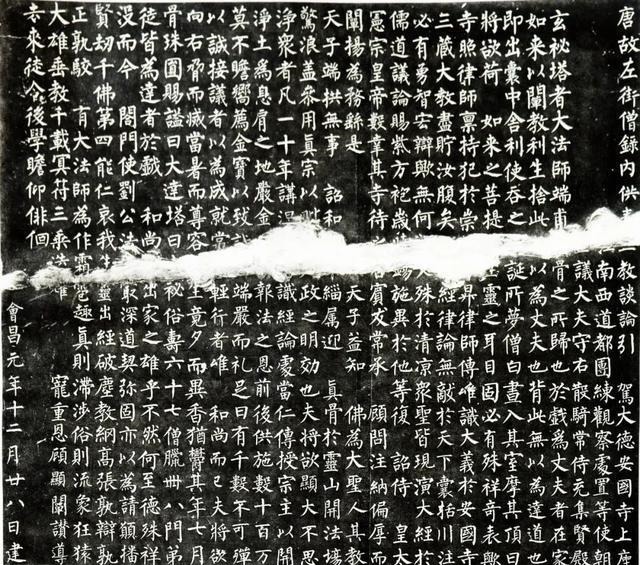 唐故左街僧錄內供三教談論引 駕大德安國寺上座
南西道都團練觀察處置等使朝
議大夫守右散騎常侍充集賢殿
玄秘塔者大法師端甫骨之所歸也於戲為丈夫者在家
如來以闡教利生捨此以為丈夫也背此無以為達道也
即出囊中舍利使吞之誕所夢僧白晝入其室摩其頂曰
將欲荷 如來之菩提靈之耳目固必有殊祥奇表歟
寺照律師稟持犯於崇昇律師傳唯識大義於安國寺
三藏大教盡貯汝腹矣經律論無敵於天下囊括川注
必有勇智宏辯歟無何殊於清涼眾聖皆現演大經於
儒道議論賜紫方袍歲錫施異於他等復 詔侍 皇太
憲宗皇帝數幸其寺待賓友常承 顧問注納偏厚而
闡揚為務繇是 天子益知 佛為大聖人其教
天子端拱無事 詔和緇属迎 真骨於靈山開法場
驚浪蓋參用真宗以毗政之明効也夫將欲顯大不思
淨眾者凡一十年講涅識經論處當仁傳授宗主以開
淨土為息肩之地嚴金報法之恩前後供施數十百万
莫不瞻嚮薦金寶以致誠端嚴而礼足日有千數不可殫
以誠接議者以為成就常輕行者唯 和尚而已夫將欲
向右脅而滅當暑而尊容生竟夕而異香猶鬱其年七月
骨珠圓賜謚曰大達塔曰秘俗壽六十七僧臘卌八門弟
徒皆為達者於戲 和尚出家之雄乎不然何至德殊祥
沒而今 閤門使劉公法最深道契弥固亦以為請願播
賢劫千佛第四能仁哀我生靈出經破塵教網高張孰辯孰
正孰駮 有大法師為作霜雹趣真則滯涉俗則流象狂猿
大雄垂教千載冥符三乘迭 寵重恩顧顯闡讚導
去來徒令後學瞻仰徘徊
會昌元年十二月廿八日建